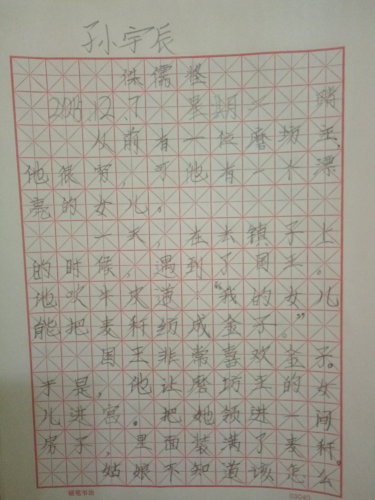 孙宇辰
侏儒怪
2016.12.7 星期一 晴
从前有一位磨坊主，
他很穷，可他有一个漂
亮的女儿。
一天，在去镇子上
的时候，遇到了国王。
他吹牛皮道："我的女儿
能把麦秆纺成金子。"
国王非常喜欢金子。
于是，他让磨坊主的女
儿进宫。把她领进一间
房子，里面装满了麦秆。
姑娘不知道该怎么
硬笔书法